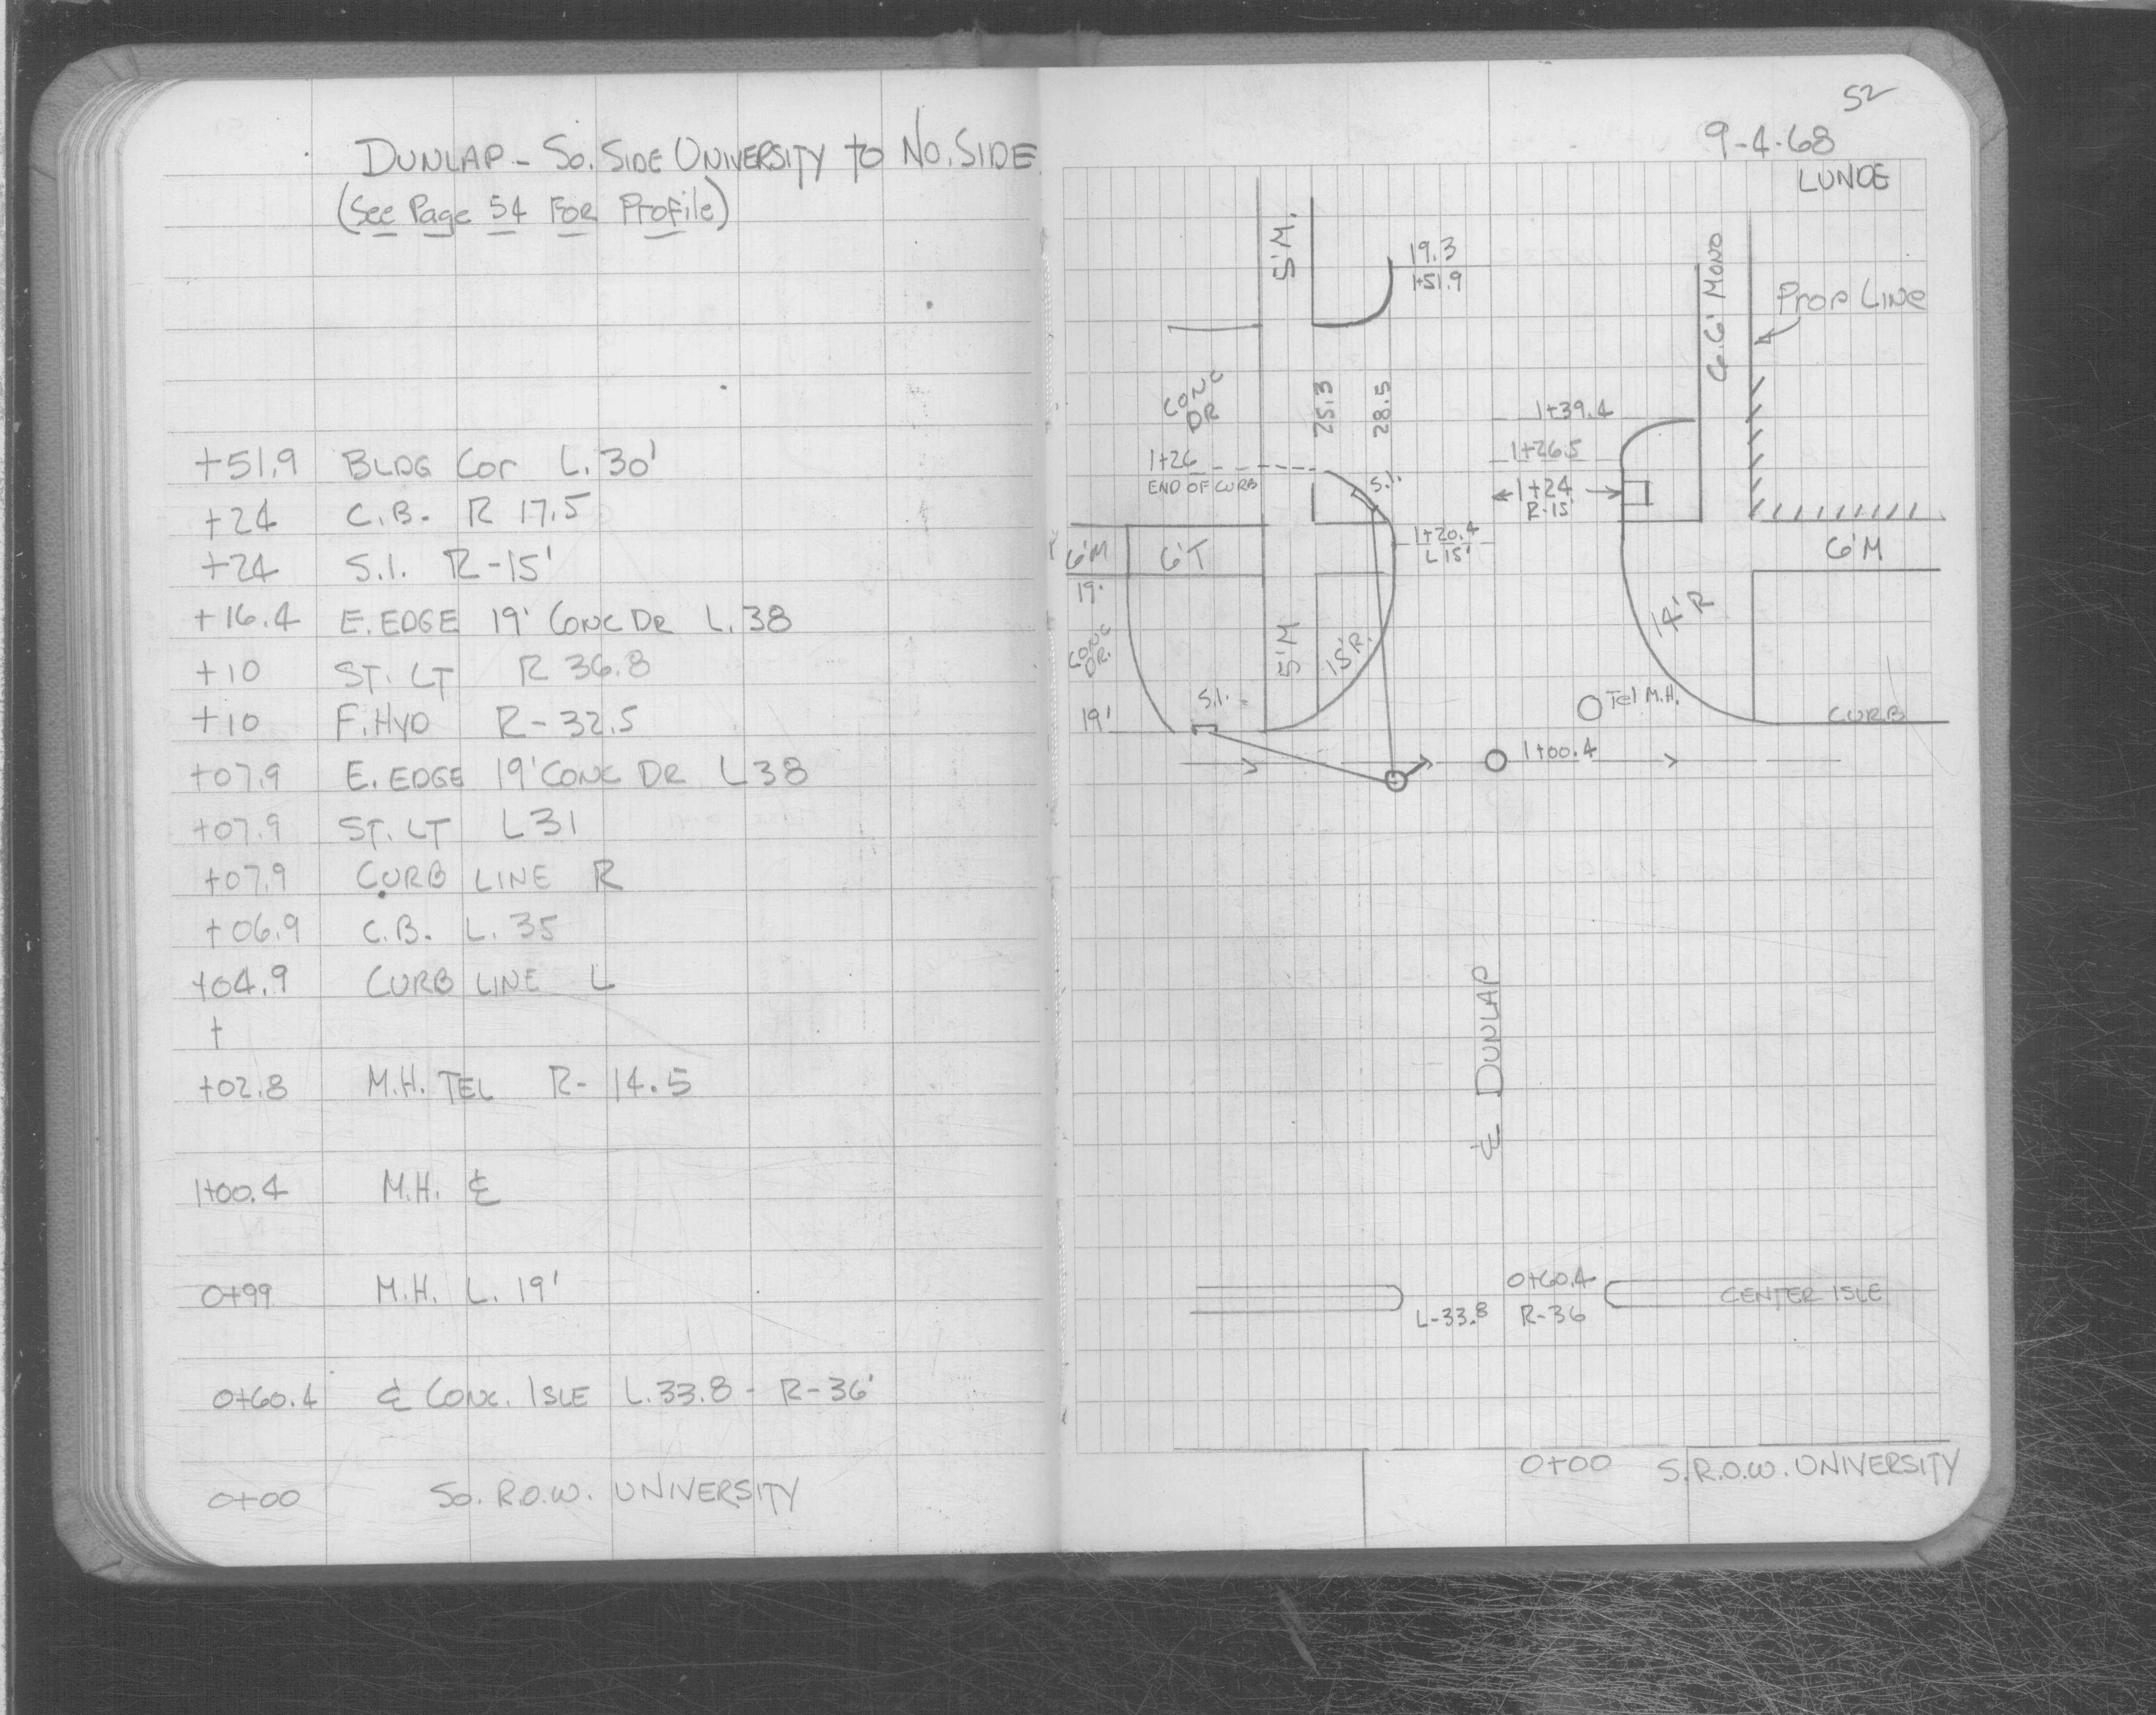 DUNLAP - SO. SIDE UNIVERSITY to NO. SIDE
(See Page 54 FOR Profile)
+51.9 BLDG Cor L. 30'
+24 C.B. R 17.5
+24 S.I. R-15'
+16.4 E. EDGE 19' CONC DR L. 38
+10 ST. LT R 36.8
+10 F. HYD R-32.5
+07.9 E. EDGE 19' CONC DR L 38
+07.9 ST. LT L 31
+07.9 CURB LINE R
+06.9 C.B. L. 35
+04.9 CURB LINE L
+
+02.8 M.H. TEL R- 14.5
1+00.4 M.H. ℄
0+99 M.H. L. 19'
0+60.4 ℄ CONC. ISLE L. 33.8 - R-36'
0+00 SO. R.O.W. UNIVERSITY
52
9-4-68
LUNDE
5'M.
19.3
1+51.9
6.6' MONO
Prop Line
CONC
DR
25.3
28.5
1+39.4
1+26.5
1+26
END OF CURB
S.I.
1+24
R-15'
1+20.4
L 15'
6'M
6'T
6'M
19'
CONC
DR.
5'M
15'R.
14'R
S.I.
19'
Tel M.H.
CURB
1+00.4
℄ DUNLAP
0+60.4
L-33.8 R-36
CENTER ISLE
0+00 S.R.O.W. UNIVERSITY